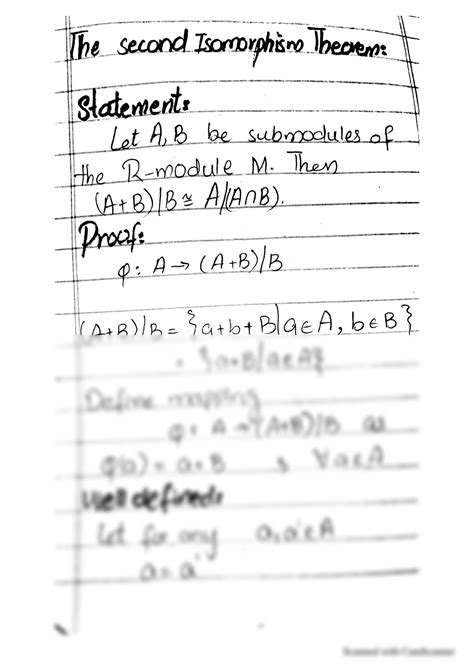 The second Isomorphism Theorem:
Statement:
Let A, B be submodules of
the R-module M. Then
(A+B)/B ≅ A/(A∩B).
Proof:
φ: A → (A+B)/B
(A+B)/B = {a+b+B|a∈A, b∈B}
= {a+B|a∈A}
Define mapping
φ: A → (A+B)/B as
φ(a) = a+B ; ∀a∈A
Well defined:
Let for any a,a'∈A
a = a'
Scanned with CamScanner